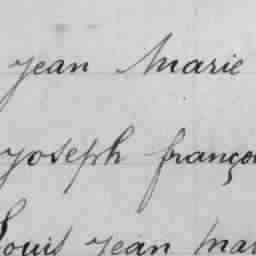 jean Marie
joseph françoi
Louis jean mar